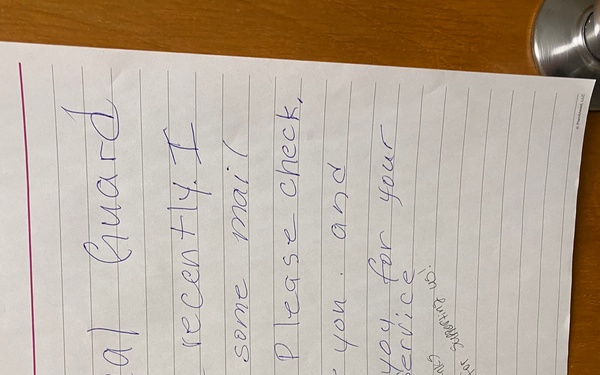 al Guard
recently. I
some mail
Please check,
you. and
you for your
service
for supporting us.